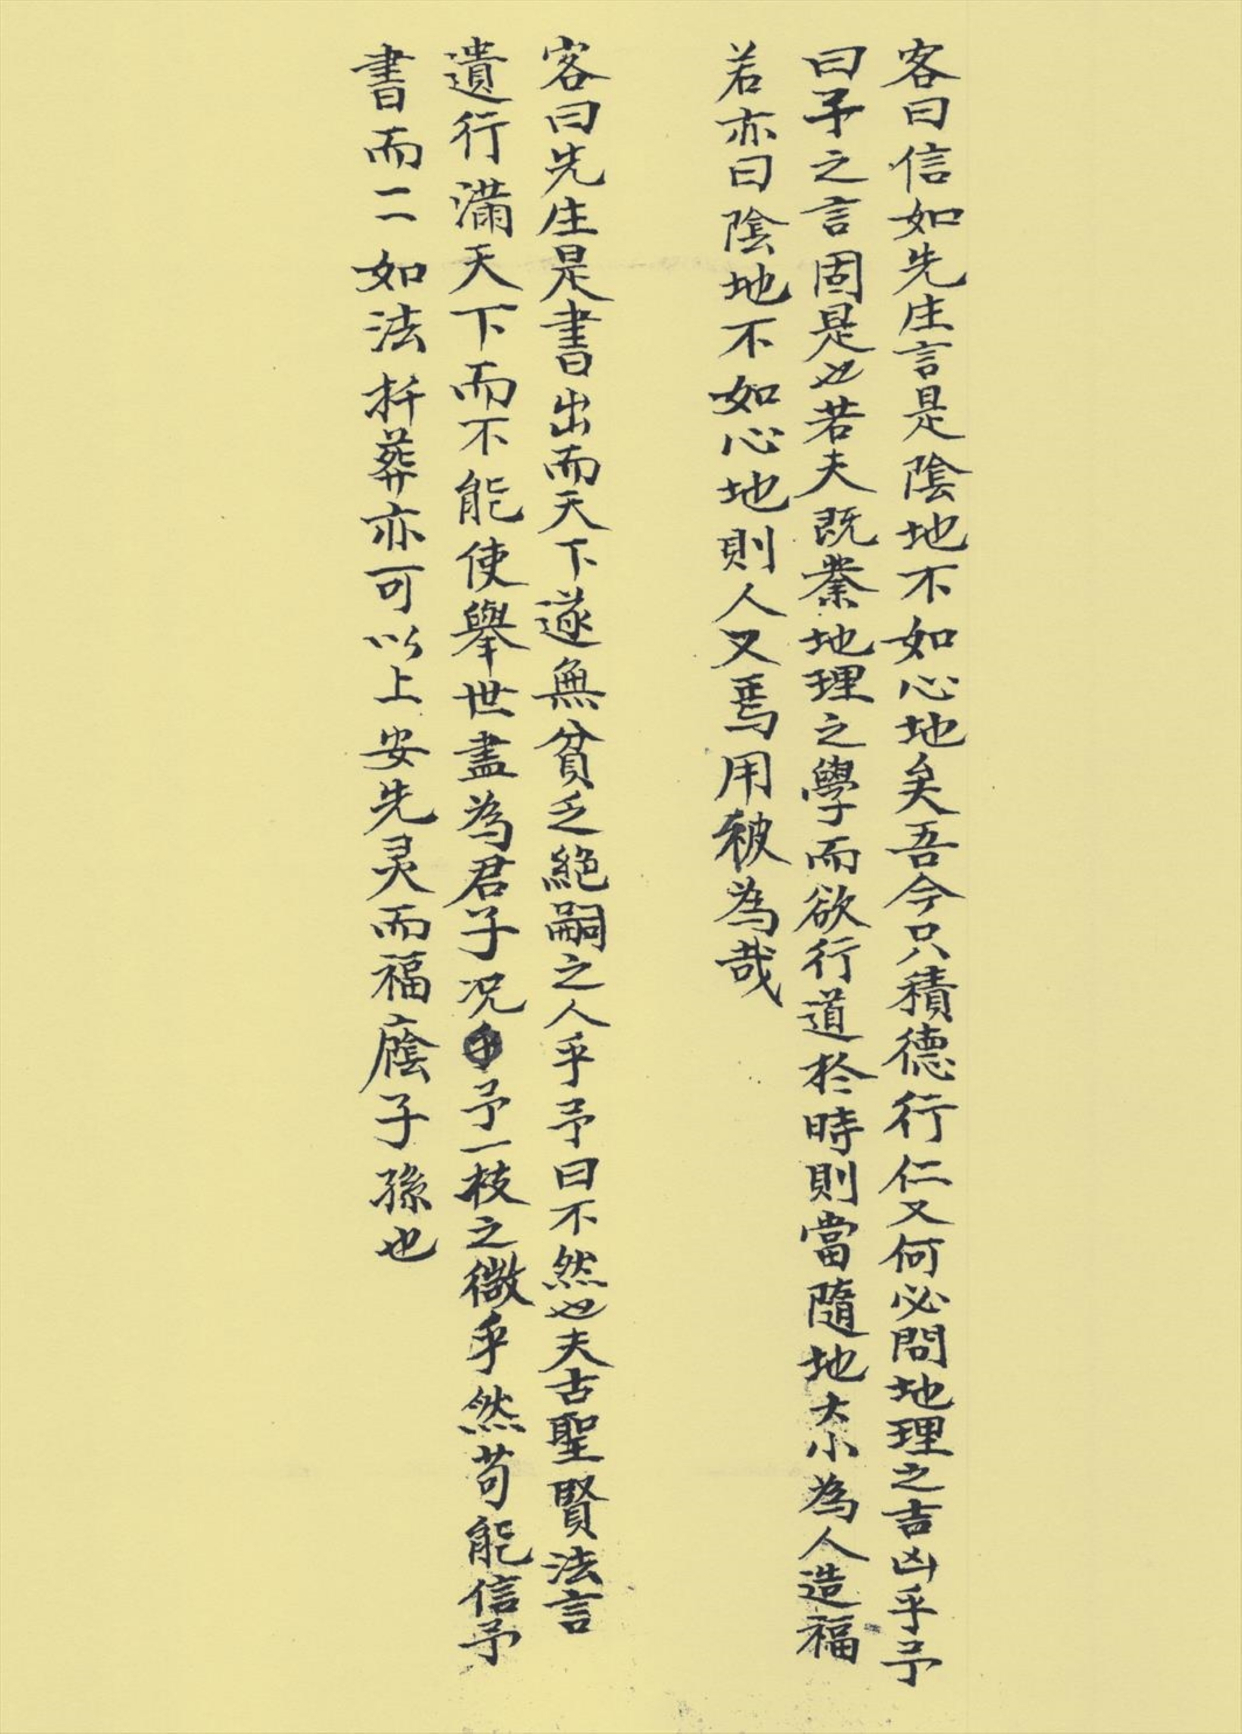 客曰信如先生言是陰地不如心地矣吾今只積德行仁又何必問地理之吉凶乎予
曰予之言固是也若夫既業地理之學而欲行道於時則當隨地大小為人造福
若亦曰陰地不如心地則人又焉用被為哉
客曰先生是書出而天下遂無貧乏絕嗣之人乎予曰不然也夫古聖賢法言
遺行滿天下而不能使舉世盡為君子況予一枝之微乎然苟能信予
書而一一如法扦葬亦可以上安先灵而福廕子孫也